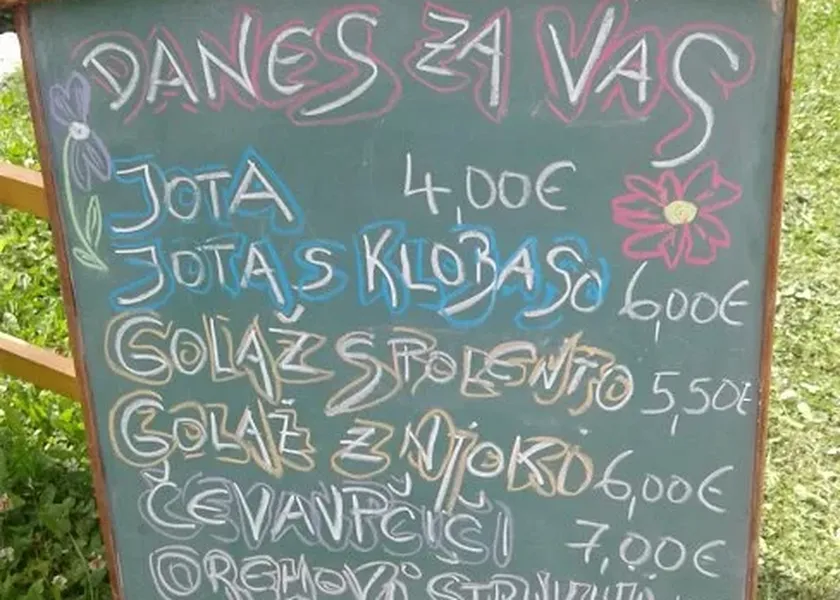 DANES ZA VAS
JOTA 4,00€
JOTA S KLOBASO 6,00€
GOLAŽ S POLENTO 5,50€
GOLAŽ Z NJOKI 6,00€
ČEVAVPČIČI 7,00€
OREHOVI